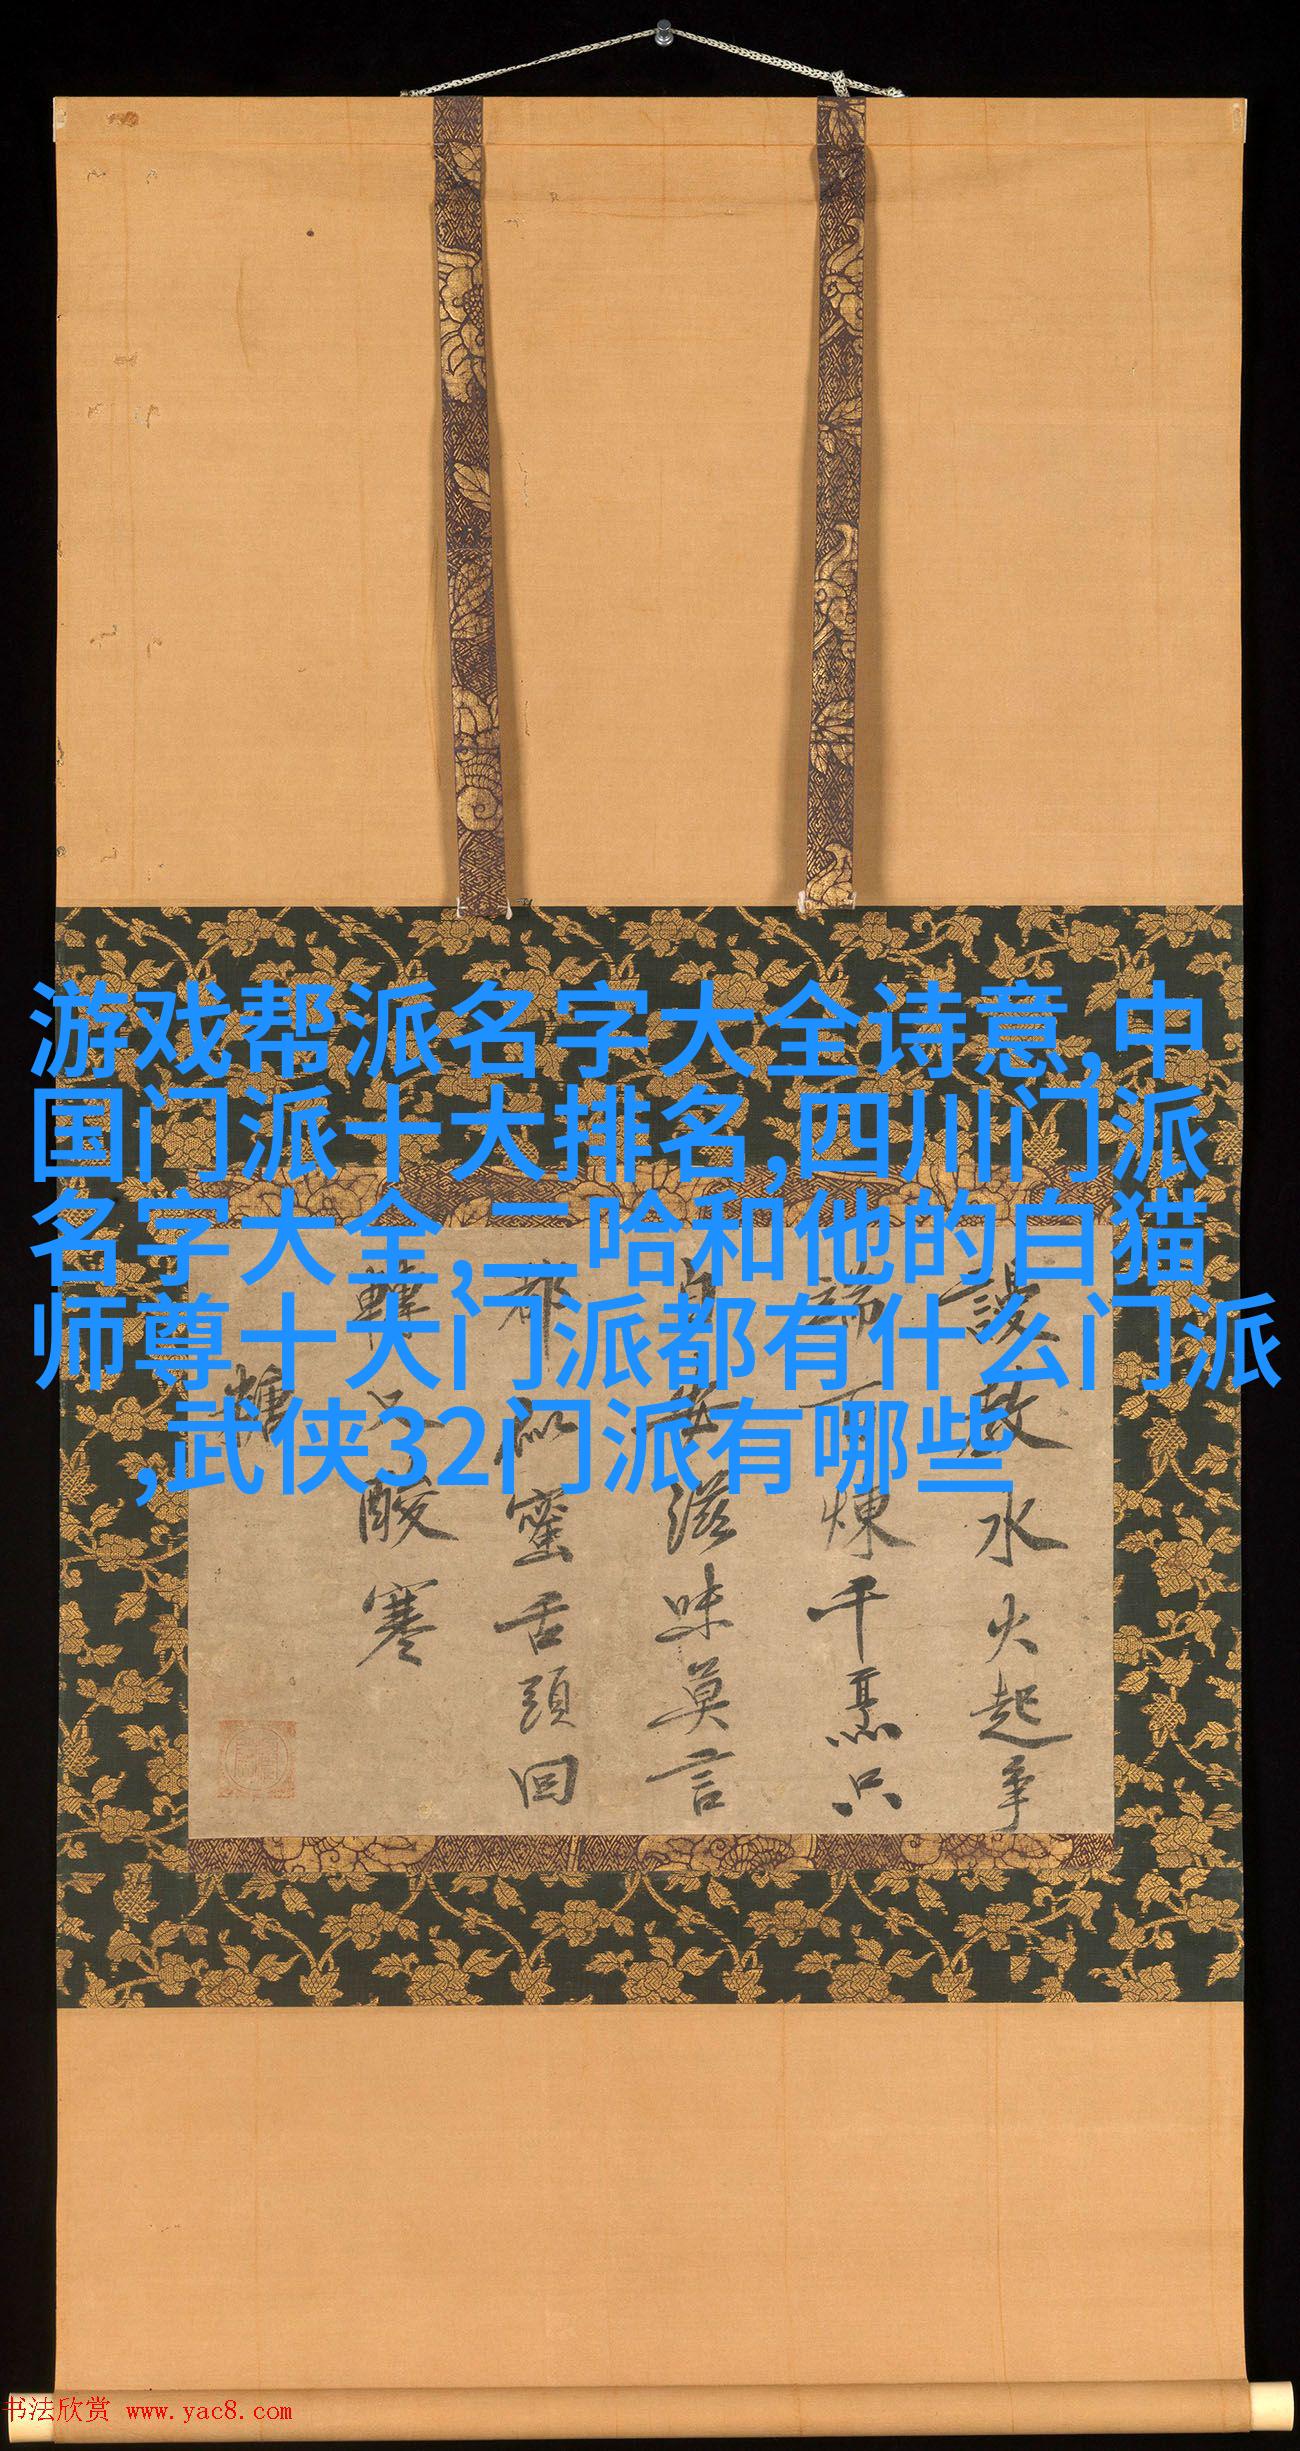 游戏帮派名字大全诗意,中
国门派十大排名,四川门派
名字大全,二哈和他的白猫
师尊十大门派都有什么门派
,武侠32门派有哪些
謾教水火起爭
端百煉千烹只
自安滋味莫言
都似蜜舌頭回
轉只酸寒
糖
书法欣赏 www.yac8.com